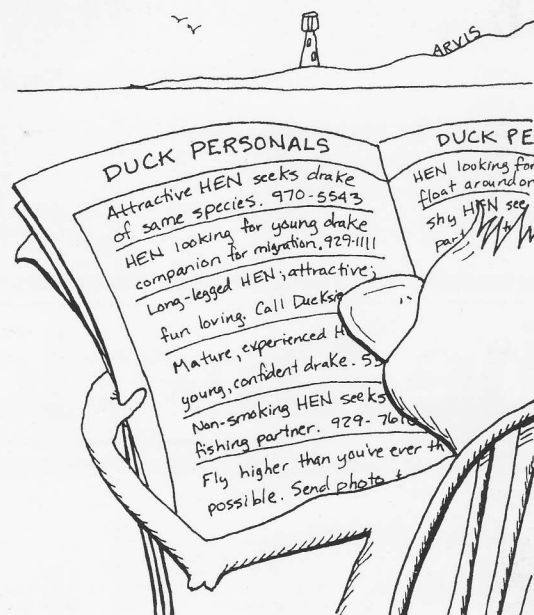 ARVIS
DUCK PERSONALS
Attractive HEN seeks drake
of same species. 970-5543
HEN looking for young drake
companion for migration. 929-1111
Long-legged HEN; attractive;
fun loving. Call
Mature, experienced
young, confident drake.
Non-smoking HEN seeks
fishing partner. 929-
Fly higher than you've ever
possible. Send photo
DUCK
HEN looking for
float around
shy HEN